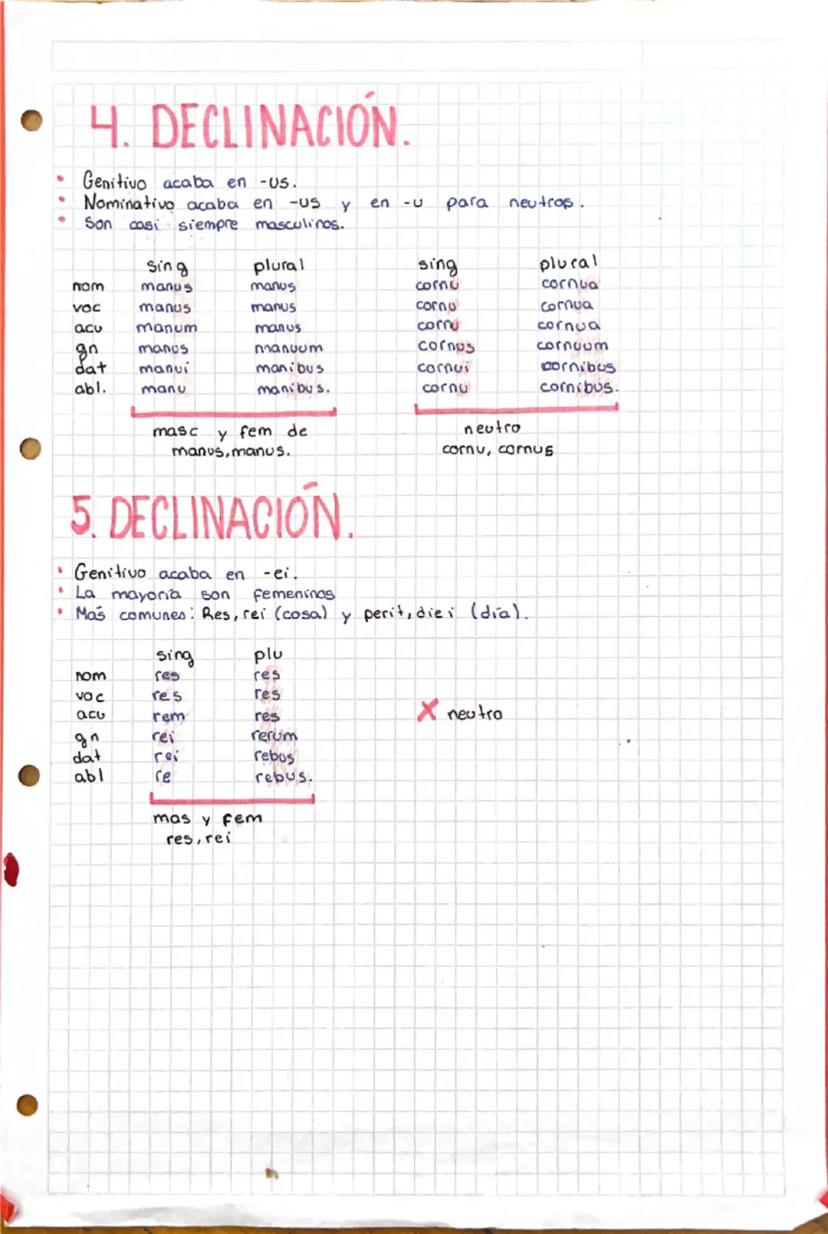 4. DECLINACIÓN.
• Genitivo acaba en -us.
• Nominativo acaba en -us y en -u para neutros.
• Son casi siempre masculinos.
sing plural sing plural
nom manus manus cornu cornua
voc manus manus cornu cornua
acu manum manus cornu cornua
gn manus manuum cornus cornuum
dat manui manibus cornui cornibus
abl. manu manibus. cornu cornibus.
masc y fem de neutro
manus, manus. cornu, cornus
5. DECLINACIÓN.
• Genitivo acaba en -ei.
• La mayoría son femeninos
• Más comunes: Res, rei (cosa) y perit, diei (día).
sing plu
nom res res
voc res res
acu rem res X neutro
gn rei rerum
dat rei rebus
abl re rebus.
mas y fem
res, rei